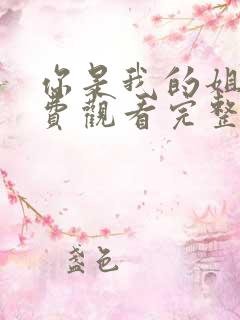 你是我的姐
費觀看完整
盏色